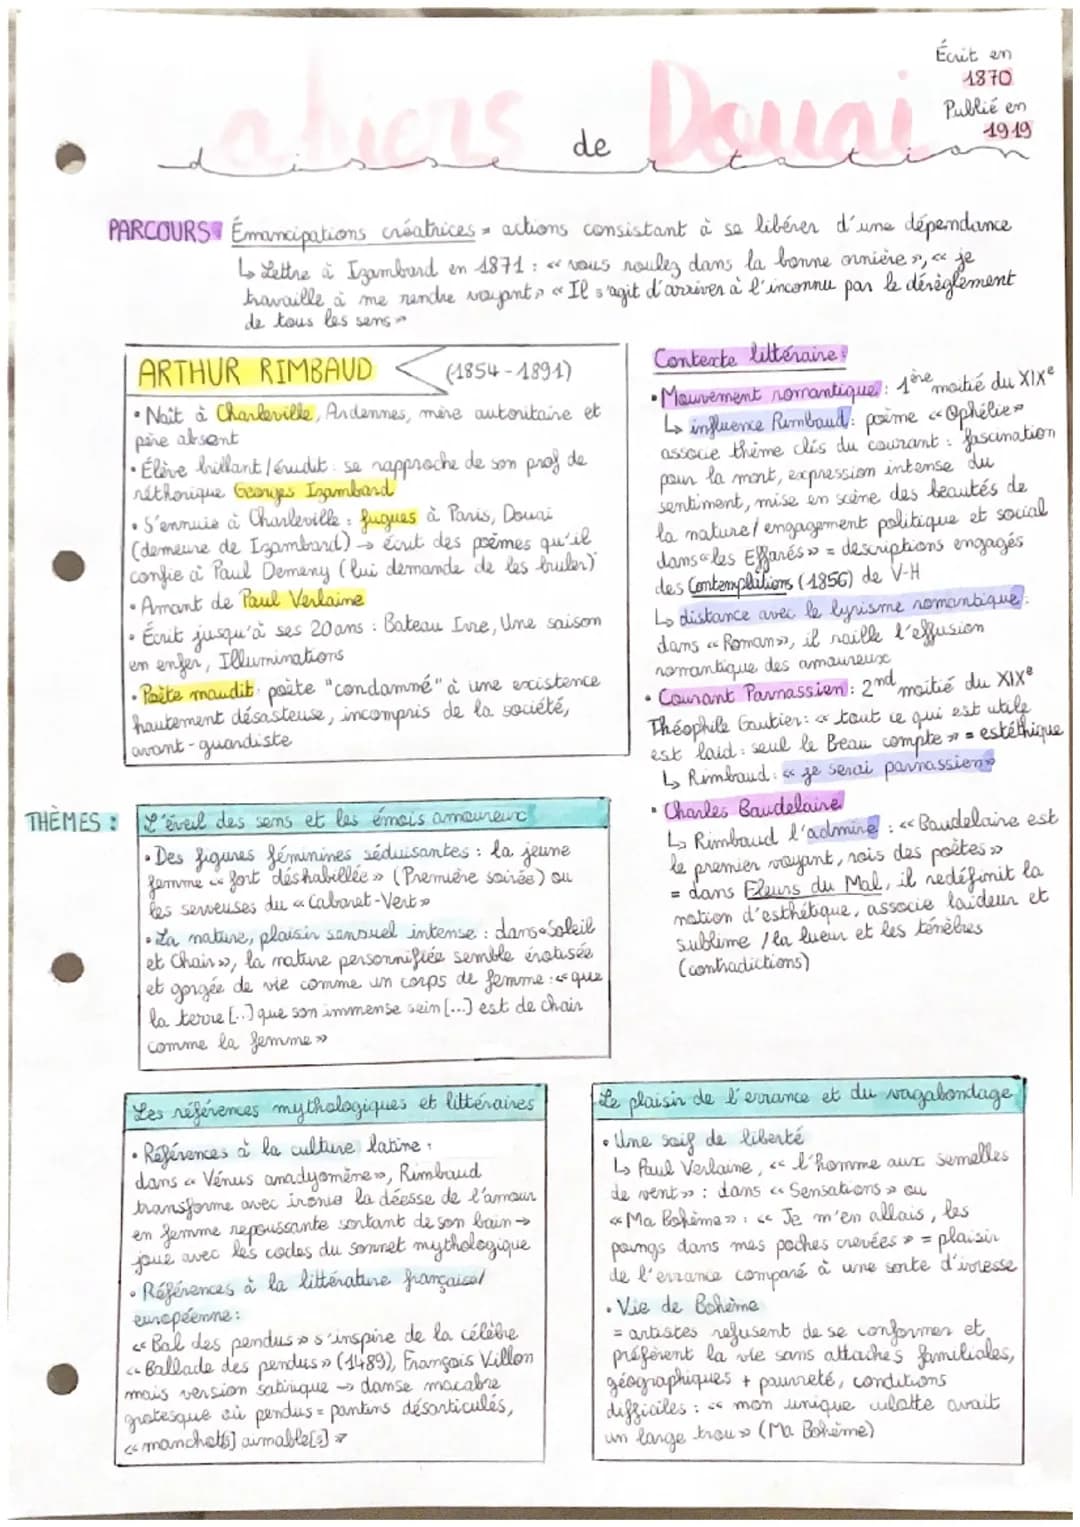 Écrit en
1870
Publié en
1919
ahiers de Douai
dissertation
PARCOURS Émancipations créatrices = actions consistant à se libérer d'une dépendance
↳ Lettre à Izambard en 1871 : « vous roulez dans la bonne ornière », « je
travaille à me rendre voyant » « Il s'agit d'arriver à l'inconnu par le dérèglement
de tous les sens »
ARTHUR RIMBAUD (1854-1891)
• Naît à Charleville, Ardennes, mère autoritaire et
père absent
• Élève brillant/érudit : se rapproche de son prof de
réthorique Georges Izambard
• S'ennuie à Charleville : fugues à Paris, Douai
(demeure de Izambard) → écrit des poèmes qu'il
confie à Paul Demeny (lui demande de les bruler)
• Amant de Paul Verlaine
• Écrit jusqu'à ses 20 ans : Bateau Ivre, Une saison
en enfer, Illuminations
• Poète maudit : poète "condamné" à une existence
hautement désasteuse, incompris de la société,
avant-guardiste
Contexte littéraire :
• Mouvement romantique : 1ère moitié du XIXe
↳ influence Rimbaud : poème « Ophélie »
associe thème clés du courant : fascination
pour la mort, expression intense du
sentiment, mise en scène des beautés de
la nature/engagement politique et social
dans « les Effarés » = descriptions engagés
des Contemplations (1856) de V-H
↳ distance avec le lyrisme romantique :
dans « Roman », il raille l'effusion
romantique des amoureux
• Courant Parnassien : 2nd moitié du XIXe
Théophile Gautier : « tout ce qui est utile
est laid : seul le Beau compte » = estéthique
↳ Rimbaud : « je serai parnassien »
• Charles Baudelaire
↳ Rimbaud l'admire : « Baudelaire est
le premier voyant, rois des poètes »
= dans Fleurs du Mal, il redéfinit la
notion d'esthétique, associe laideur et
sublime / la lueur et les ténèbres
(contradictions)
THÈMES :
L'éveil des sens et les émois amoureux
• Des figures féminines séduisantes : la jeune
femme « fort déshabillée » (Première soirée) ou
les serveuses du « Cabaret-Vert »
• La nature, plaisir sensuel intense : dans « Soleil
et Chair », la nature personnifiée semble érotisée
et gorgée de vie comme un corps de femme : « que
la terre [...] que son immense sein [...] est de chair
comme la femme »
Les références mythologiques et littéraires
• Références à la culture latine :
dans « Vénus anadyomène », Rimbaud
transforme avec ironie la déesse de l'amour
en femme repoussante sortant de son bain →
joue avec les codes du sonnet mythologique
• Références à la littérature française/
européenne :
« Bal des pendus » s'inspire de la célèbre
« Ballade des pendus » (1489), François Villon
mais version satirique → danse macabre
grotesque où pendus = pantins désarticulés,
« manchot[s] aimable[s] »
Le plaisir de l'errance et du vagabondage
• Une soif de liberté
↳ Paul Verlaine, « l'homme aux semelles
de vent » : dans « Sensations » ou
« Ma Bohème » : « Je m'en allais, les
poings dans mes poches crevées » = plaisir
de l'errance comparé à une sorte d'ivresse
• Vie de Bohème
= artistes refusent de se conformer et
préfèrent la vie sans attaches familiales,
géographiques + pauvreté, conditions
difficiles : « mon unique culotte avait
un large trou » (Ma Bohème)